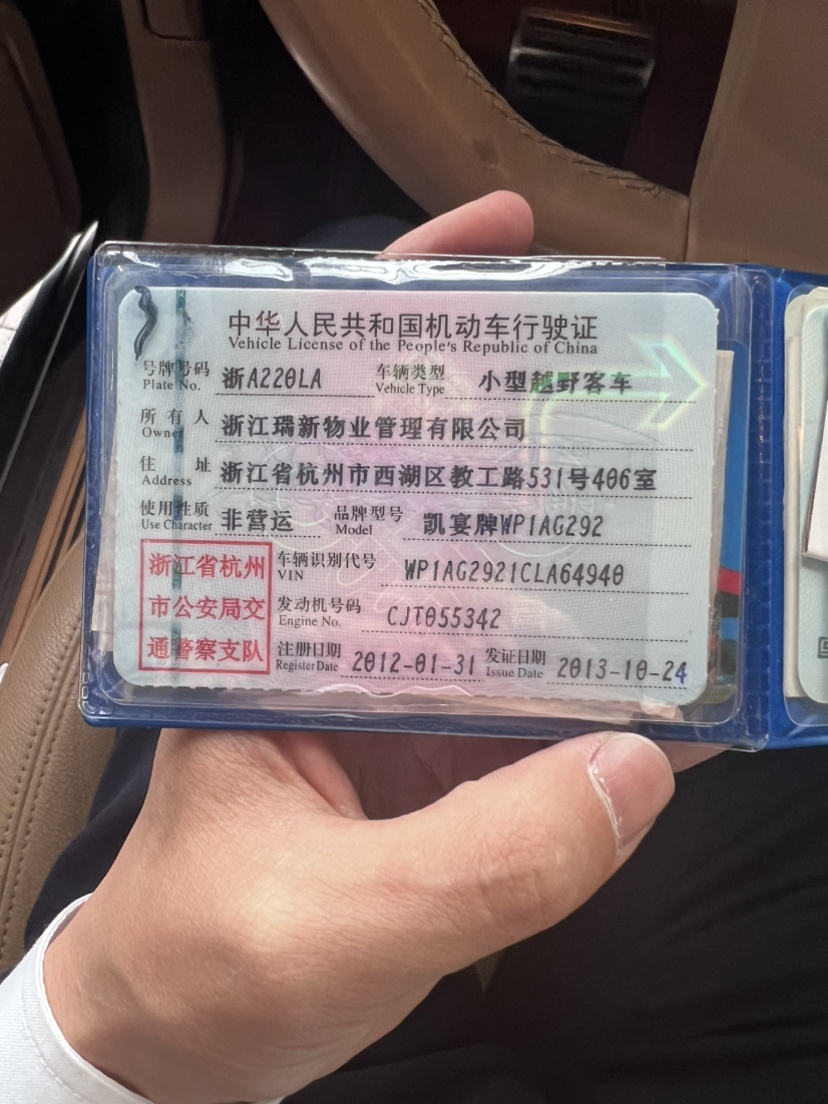 中华人民共和国机动车行驶证
Vehicle License of the People's Republic of China
号牌号码 浙A220LA 车辆类型 小型越野客车
Plate No. Vehicle Type
所有人 浙江瑞新物业管理有限公司
Owner
住址 浙江省杭州市西湖区教工路531号406室
Address
使用性质 非营运 品牌型号 凯宴牌WP1AG292
Use Character Model
浙江省杭州市公安局交通警察支队
车辆识别代号 WP1AG2921CLA64940
VIN
发动机号码 CJT055342
Engine No.
注册日期 2012-01-31 发证日期 2013-10-24
Register Date Issue Date